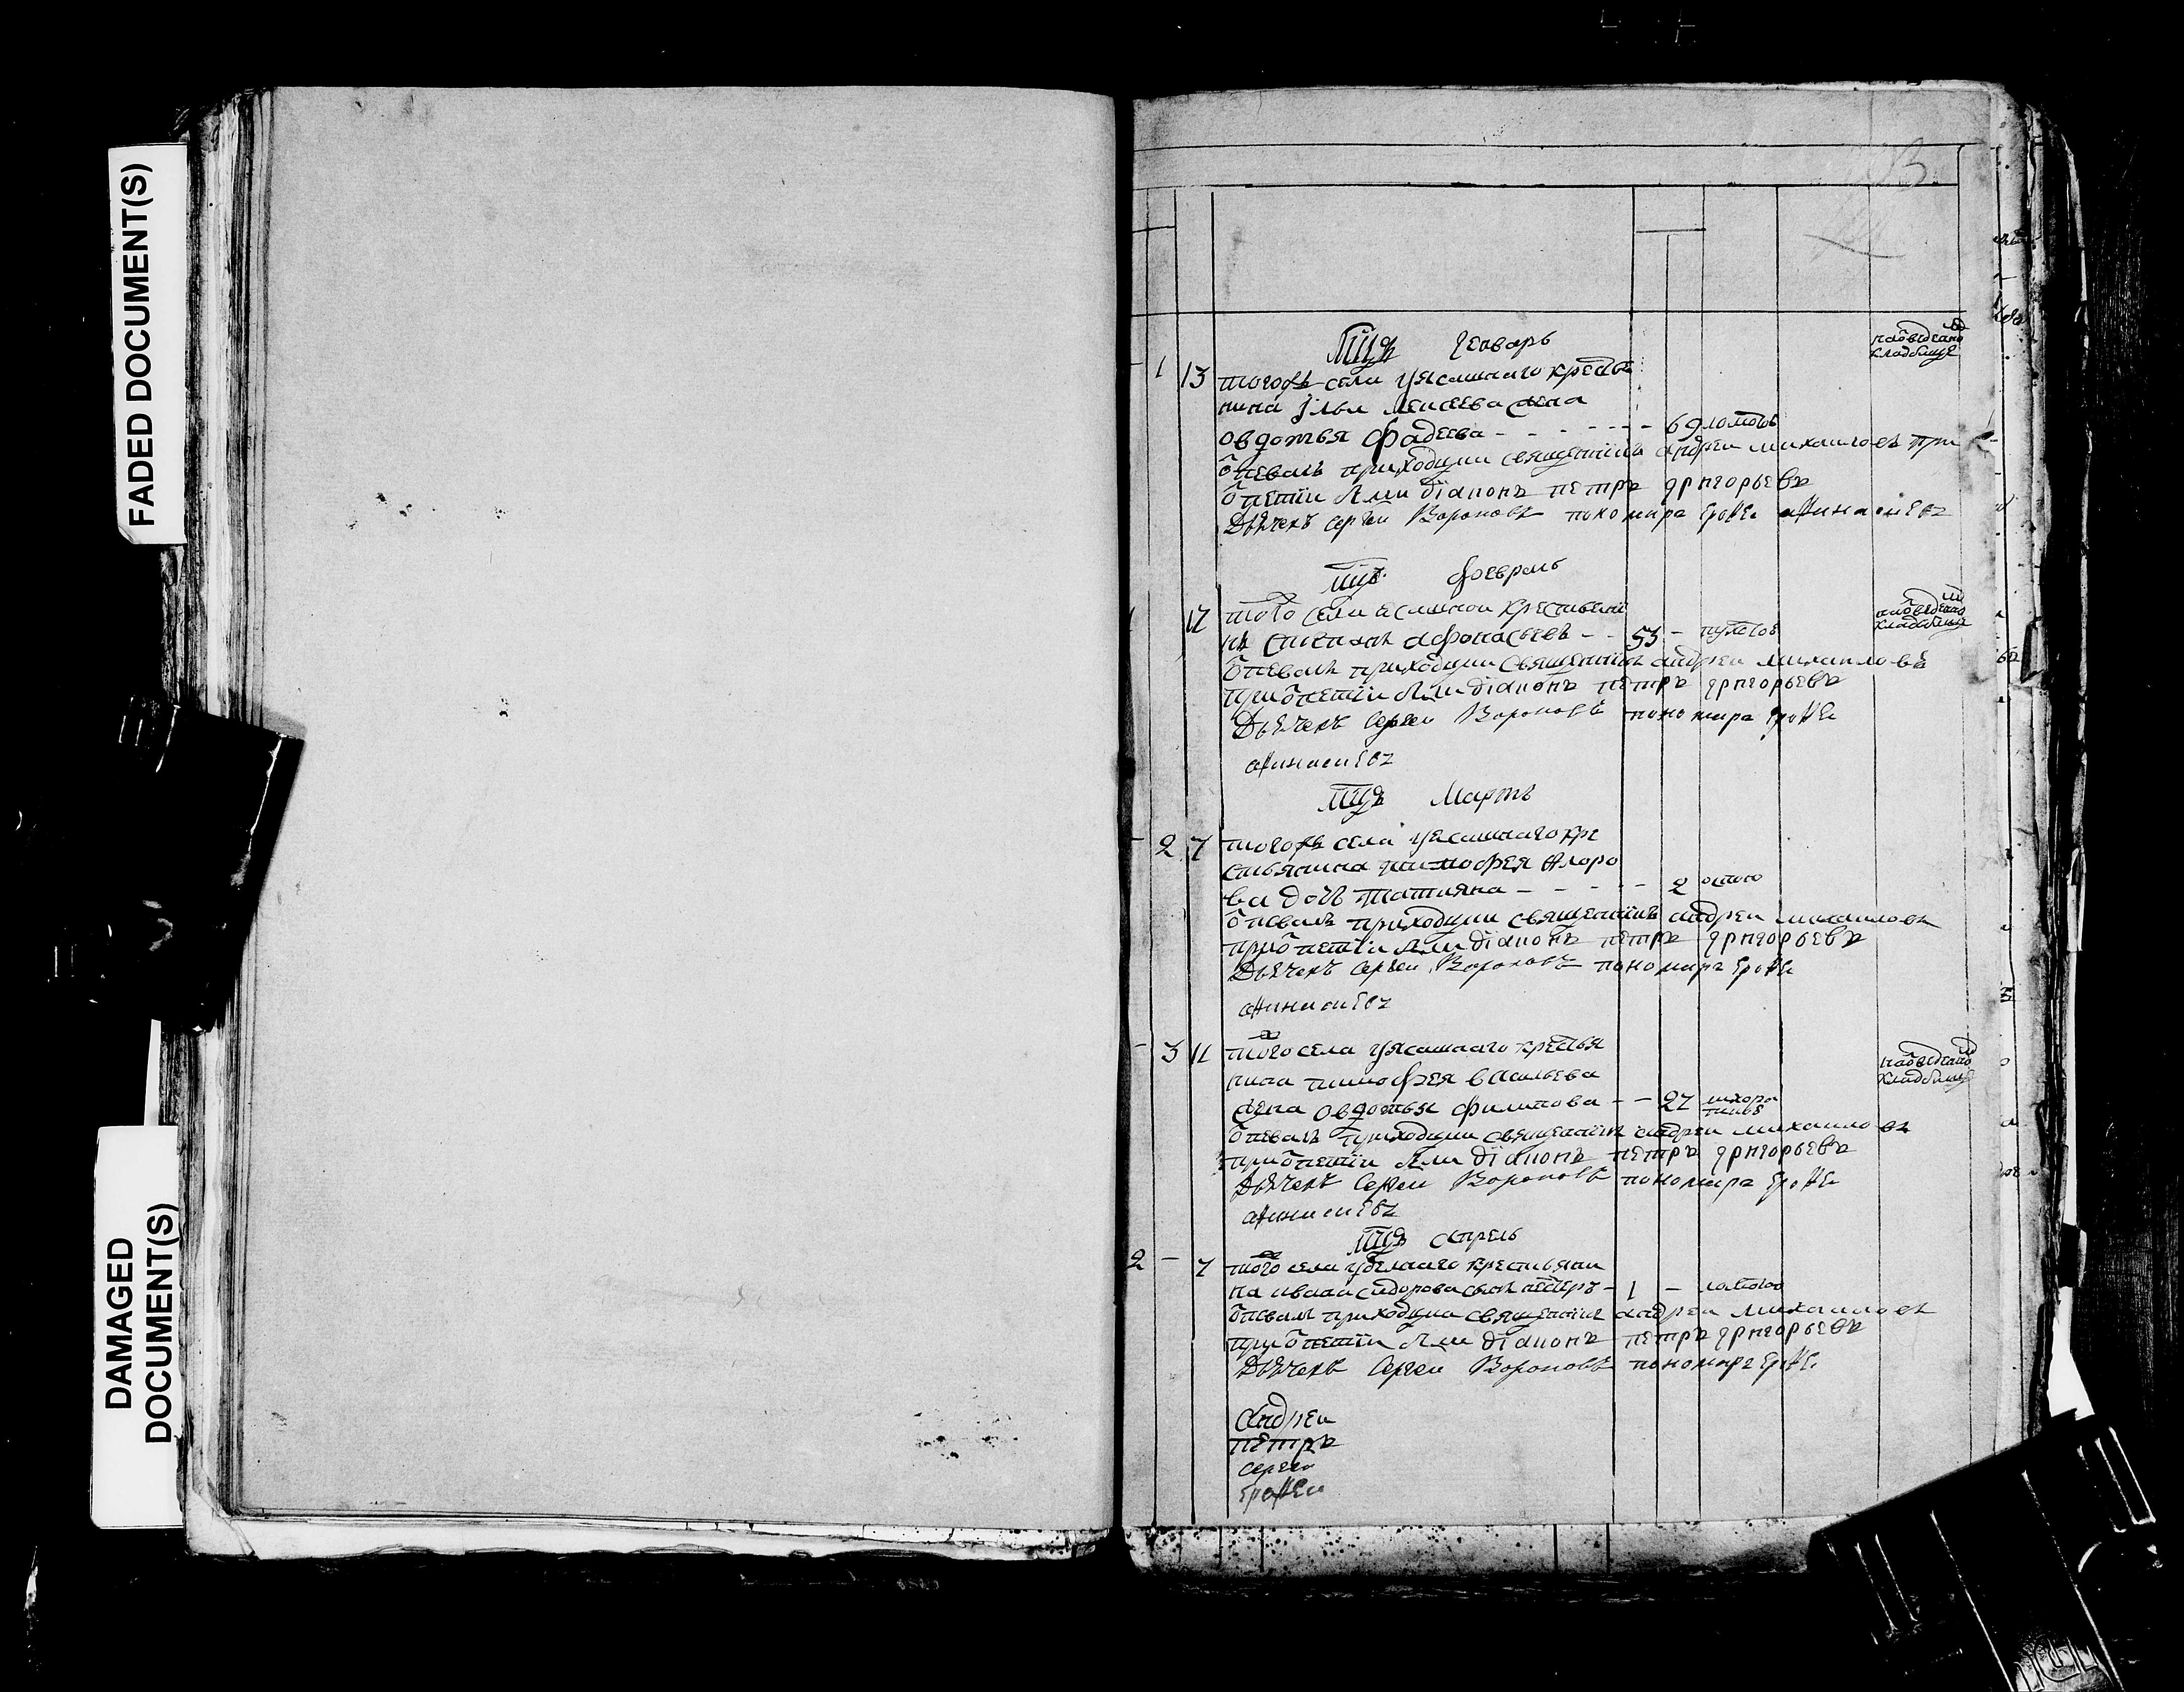 FADED DOCUMENT(S)
DAMAGED
DOCUMENT(S)
Мцъ Генварь
1 13 тогожъ села уясашнаго крестья
нина Ильи Моисеева жена
овдотья фадеева - - - - - - - 69
отпевалъ приходцки священникъ андреи михаиловъ при
отпетіи были діаконъ петръ григорьевъ
Дьячекъ Сергеи Вороновъ пономарь Ерофеи афанасиевъ
на отведеном
кладбище
Мцъ февраль
1 12 того села ясашнои крестьяни
нъ Степанъ афонасьевъ - - 53 -
отпевалъ приходцки священникъ андреи михаиловъ
при отпетіи были діаконъ петръ григорьевъ
Дьячекъ Сергеи Вороновъ пономарь Ерофеи
афанасиевъ
на отведеном
кладбище
Мцъ Мартъ
- 2 7 тогожъ села уясашнаго кре
стьянина тимофея флоро
ва дочь татияна - - - - - 2
отпевалъ приходцки священникъ андреи михаиловъ
при отпетіи были діаконъ петръ григорьевъ
Дьячекъ Сергеи Вороновъ пономарь Ерофеи
афанасиевъ
- 3 11 того села уясашнаго крестья
нина тимофея васильева
жена овдотья филипова - - 27
отпевалъ приходцки священникъ андреи михаиловъ
при отпетіи были діаконъ петръ григорьевъ
Дьячекъ Сергеи Вороновъ пономарь Ерофеи
афанасиевъ
на отведеном
кладбище
Мцъ апрель
2 - 7 того села уделнаго крестьяни
на ивана сидорова сынъ петръ - 1 -
отпевалъ приходцки священникъ андреи михаиловъ
при отпетіи были діаконъ петръ григорьевъ
Дьячекъ Сергеи Вороновъ пономарь Ерофеи
андреи
петръ
сергеи
ерофеи